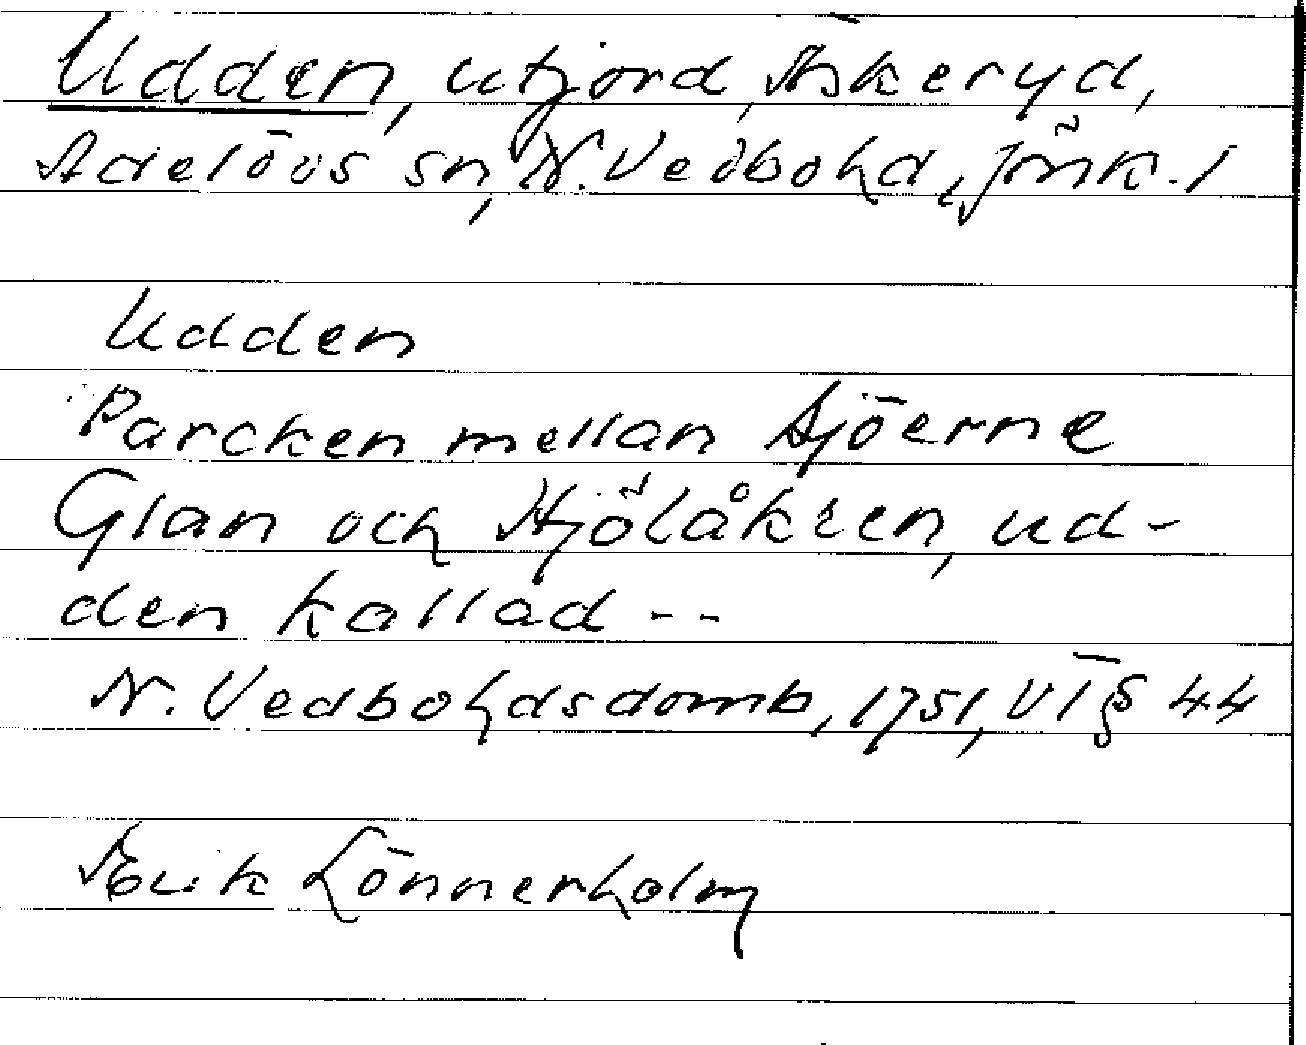 Udden, utjord, Äskeryd,
Adelövs sn, N. Vedbohd, Jönk. l
Udden
Parcken mellan Sjöerne
Glan och Hjölåkren, ud-
den kallad --
N. Vedbohdsdomb, 1751, VI § 44
Erik Lönnerholm